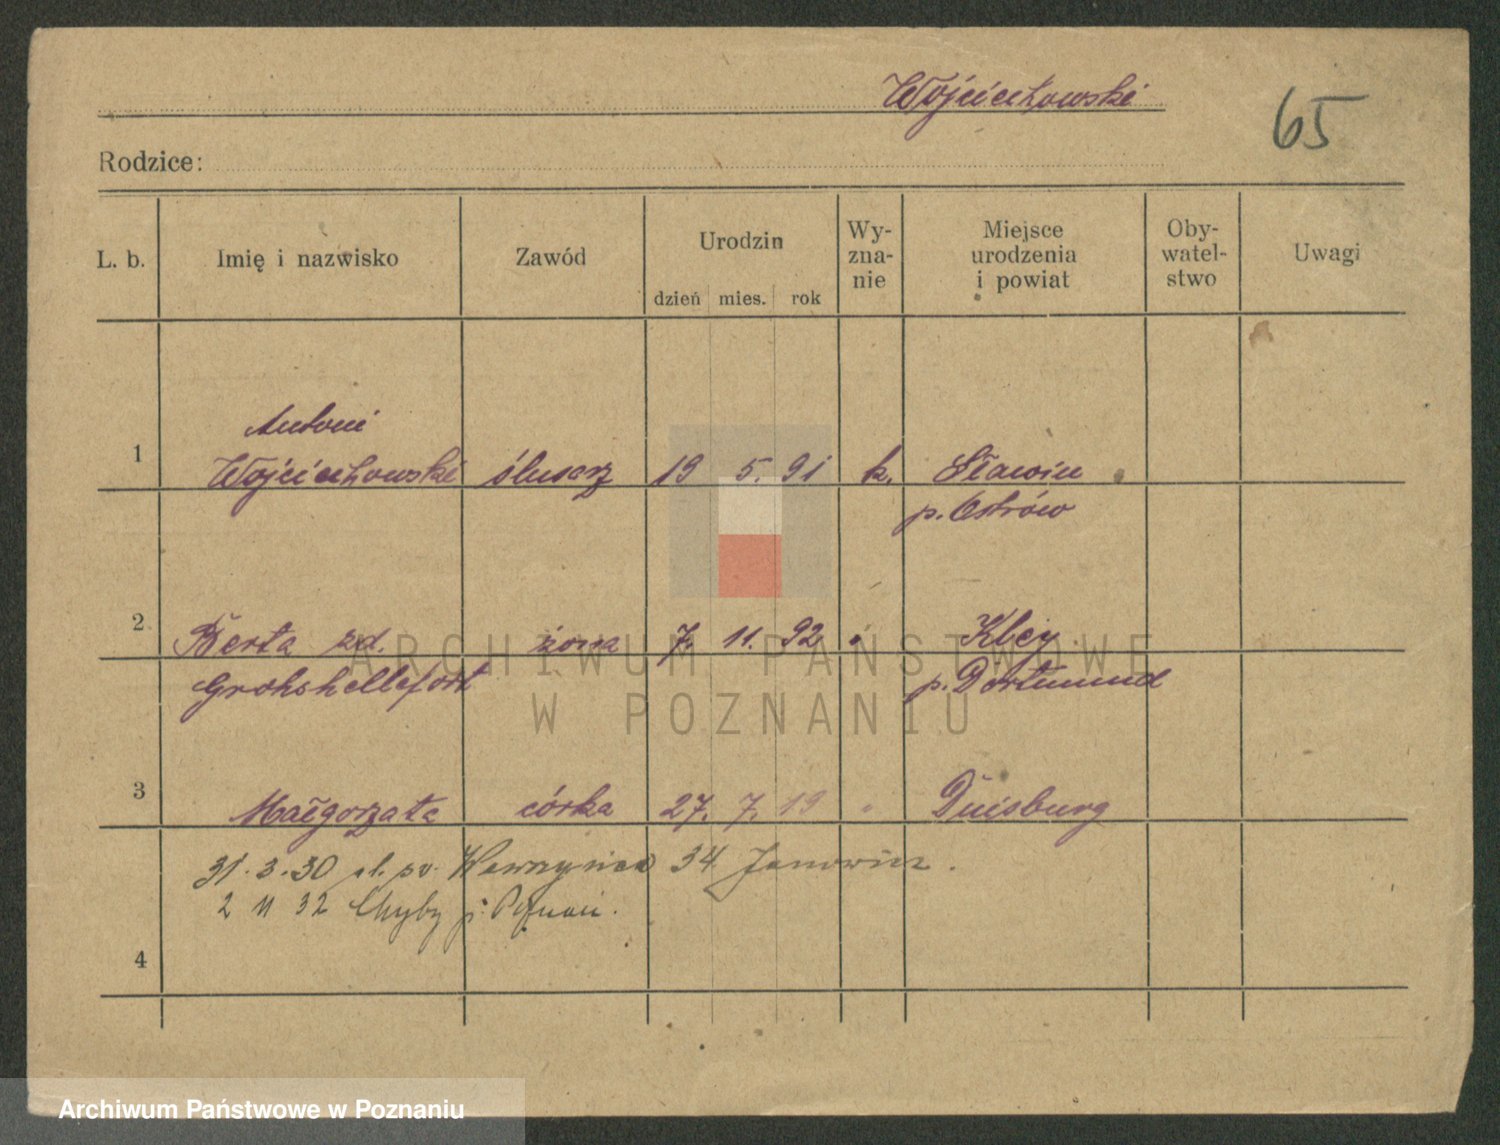 Wojciechowski
65
Rodzice:
L. b. Imię i nazwisko Zawód Urodzin dzień mies. rok Wy-zna-nie Miejsce urodzenia i powiat Oby-watel-stwo Uwagi
Antoni
1 Wojciechowski ślusarz 19 5. 91 k. Sławin
p. Ostrów
2 Berta zd. żona 7. 11. 92 " Kley
Grohshellefort p. Dortmund
3 Małgorzata córka 27. 7. 19 " Duisburg
31.3.30 pl. św. Wawrzyńca 34 Janowicz.
2 11 32 Chyby p. Poznań.
4
ARCHIWUM PAŃSTWOWE
W POZNANIU
Archiwum Państwowe w Poznaniu